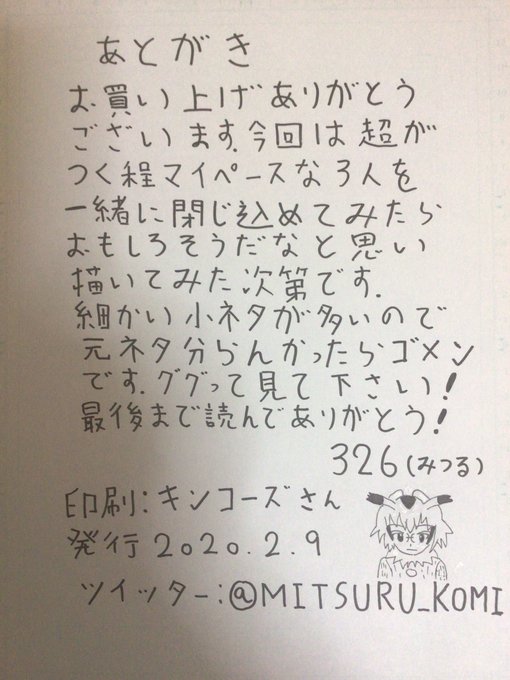 あとがき
お買い上げありがとう
ございます.今回は超が
つく程マイペースな3人を
一緒に閉じ込めてみたら
おもしろそうだなと思い
描いてみた次第です.
細かい小ネタが多いので
元ネタ分らんかったらゴメン
です.ググって見て下さい!
最後まで読んでありがとう!
326(みつる)
印刷:キンコーズさん
発行2020.2.9
ツイッター:@MITSURU_KOMI